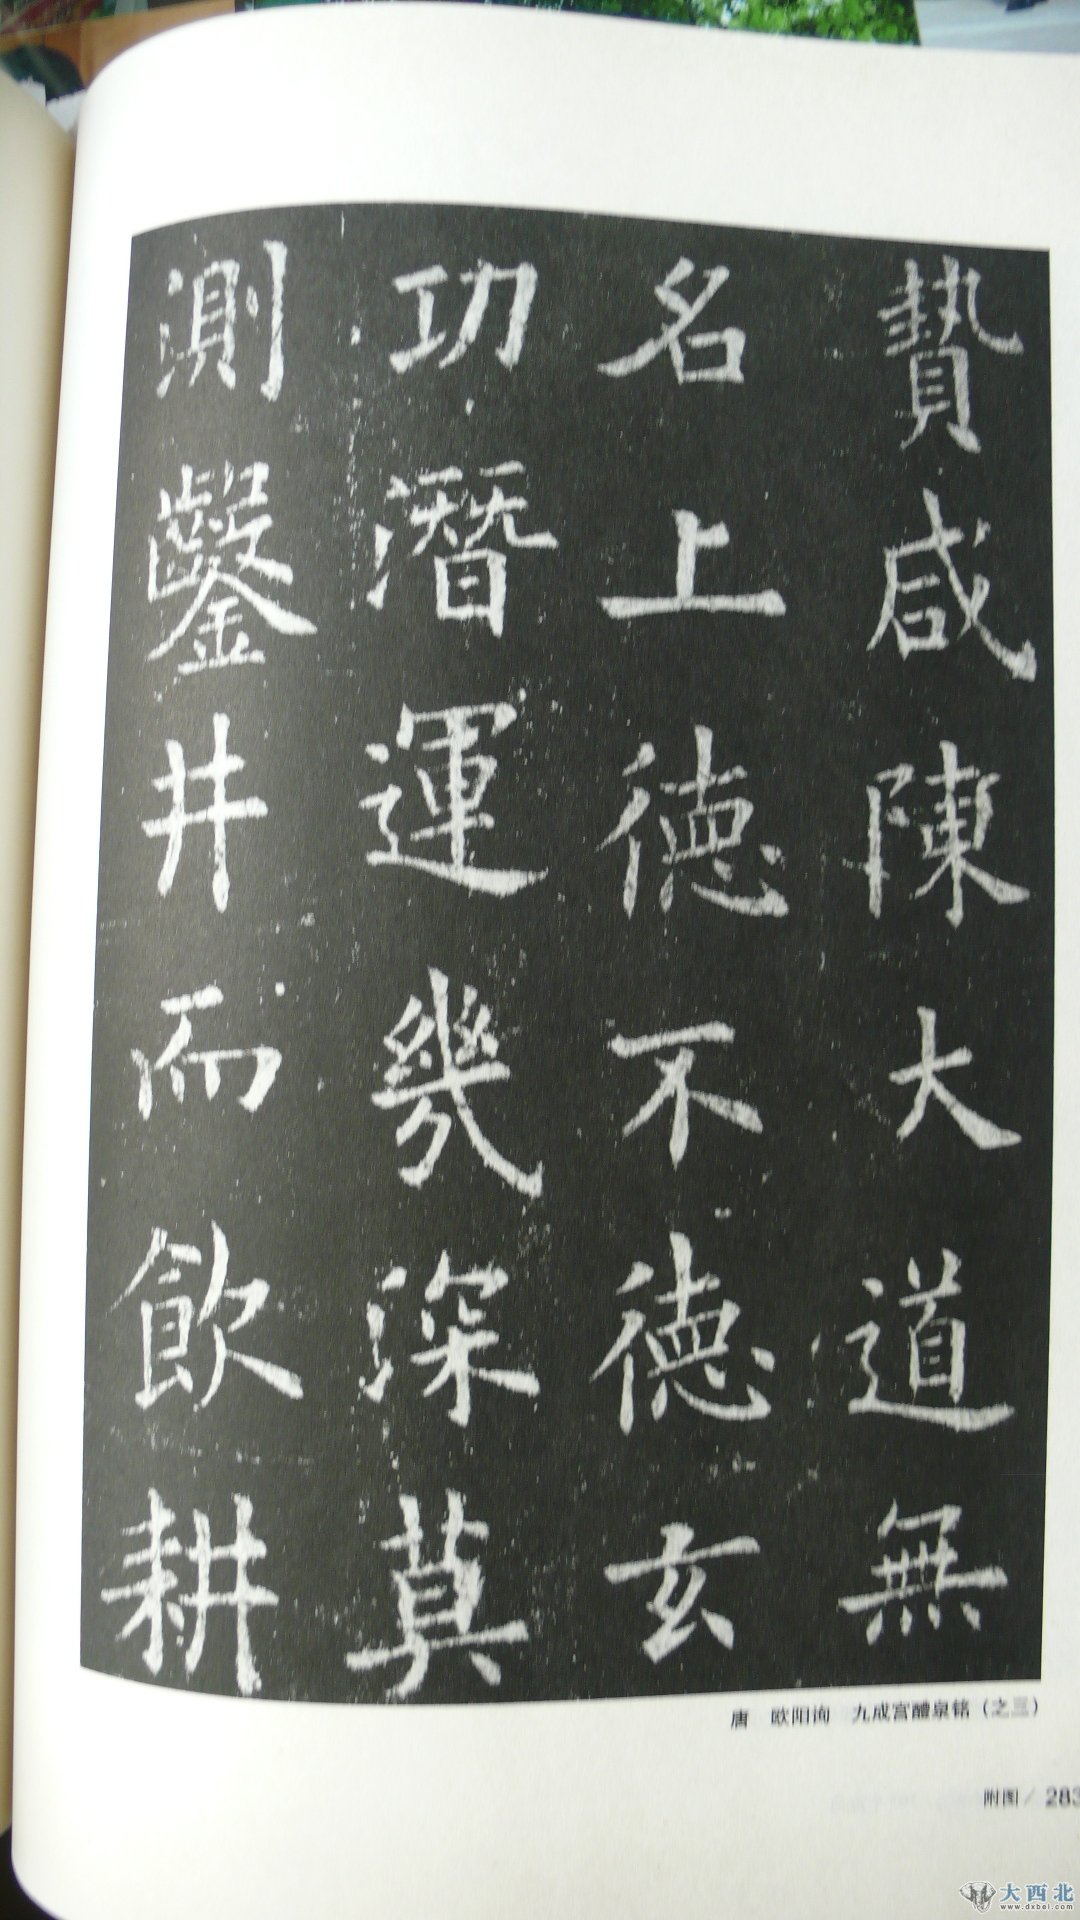 贄咸陳大道無
名上德不德玄
功潛運幾深莫
測鑿井而飲耕
唐 欧阳询 九成宫醴泉铭（之三）
附图／283
大西北
www.dxbei.com